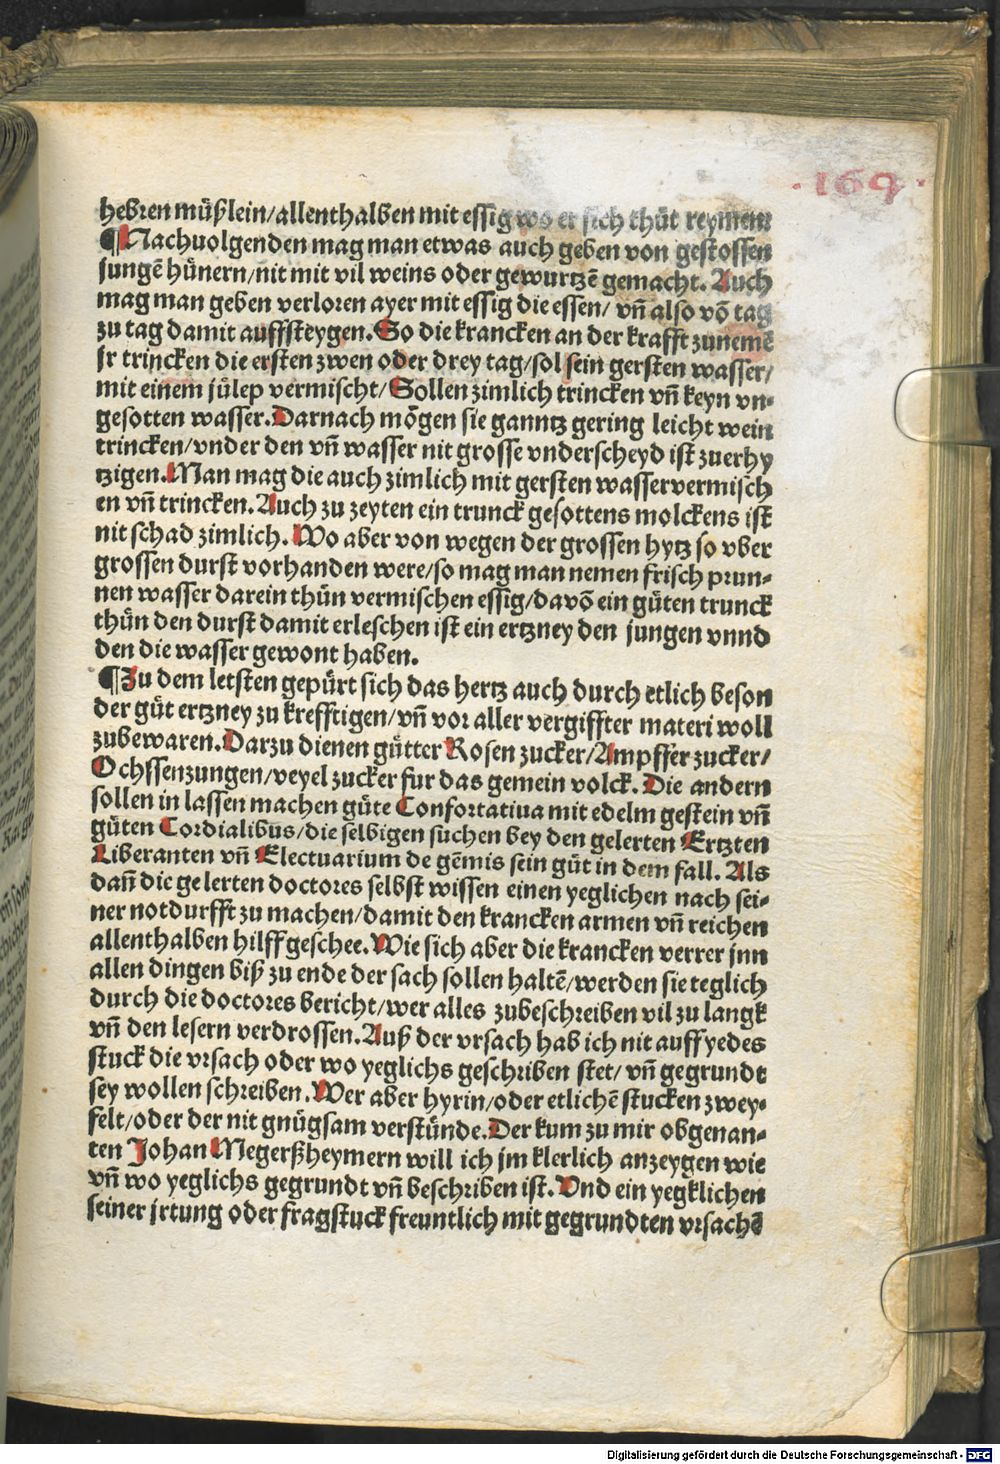 ·169·
hebren müßlein/allenthalben mit essig wo er sich thüt reymem
¶Nachuolgenden mag man etwas auch geben von gestossen
jungē hünern/nit mit vil weins oder gewurtzē gemacht. Auch
mag man geben verloren ayer mit essig die essen/ vn̄ also vō tag
zu tag damit auffsteygen. So die krancken an der krafft zunemē
jr trincken die ersten zwen oder drey tag/sol sein gersten wasser/
mit einem jülep vermischt/Sollen zimlich trincken vn̄ keyn vn-
gesotten wasser. Darnach mögen sie ganntz gering leicht wein
trincken/vnder den vn̄ wasser nit grosse vnderscheyd ist zuerhy
tzigen. Man mag die auch zimlich mit gersten wasser vermisch
en vn̄ trincken. Auch zu zeyten ein trunck gesottens molckens ist
nit schad zimlich. Wo aber von wegen der grossen hytz so vber
grossen durst vorhanden were/so mag man nemen frisch prun-
nen wasser darein thün vermischen essig/davō ein güten trunck
thün den durst damit erleschen ist ein ertzney den jungen vnnd
den die wasser gewont haben.
¶Zu dem letsten gepürt sich das hertz auch durch etlich beson
der güt ertzney zu krefftigen/vn̄ vor aller vergiffter materi woll
zubewaren. Darzu dienen gütter Rosen zucker/Ampffer zucker/
Ochssenzungen/veyel zucker fur das gemein volck. Die andern
sollen in lassen machen güte Confortatiua mit edelm gestein vn̄
güten Cordialibus/die selbigen suchen bey den gelerten Ertzten
Liberanten vn̄ Electuarium de gēmis sein güt in dem fall. Als
dan̄ die gelerten doctores selbst wissen einen yeglichen nach sei-
ner notdurfft zu machen/damit den krancken armen vn̄ reichen
allenthalben hilff geschee. Wie sich aber die krancken verrer jnn
allen dingen biß zu ende der sach sollen haltē/werden sie teglich
durch die doctores bericht/wer alles zubeschreiben vil zu langk
vn̄ den lesern verdrossen. Auß der vrsach hab ich nit auff yedes
stuck die vrsach oder wo yeglichs geschriben stet/ vn̄ gegrundt
sey wollen schreiben. Wer aber hyrin/oder etlichē stucken zwey-
felt/oder der nit gnügsam verstünde. Der kum zu mir obgenan-
ten Johan Megerßheymern will ich jm klerlich anzeygen wie
vn̄ wo yeglichs gegrundt vn̄ beschriben ist. Vnd ein yegklichen
seiner jrtung oder fragstuck freuntlich mit gegrundten vrsachē
Digitalisierung gefördert durch die Deutsche Forschungsgemeinschaft - DFG